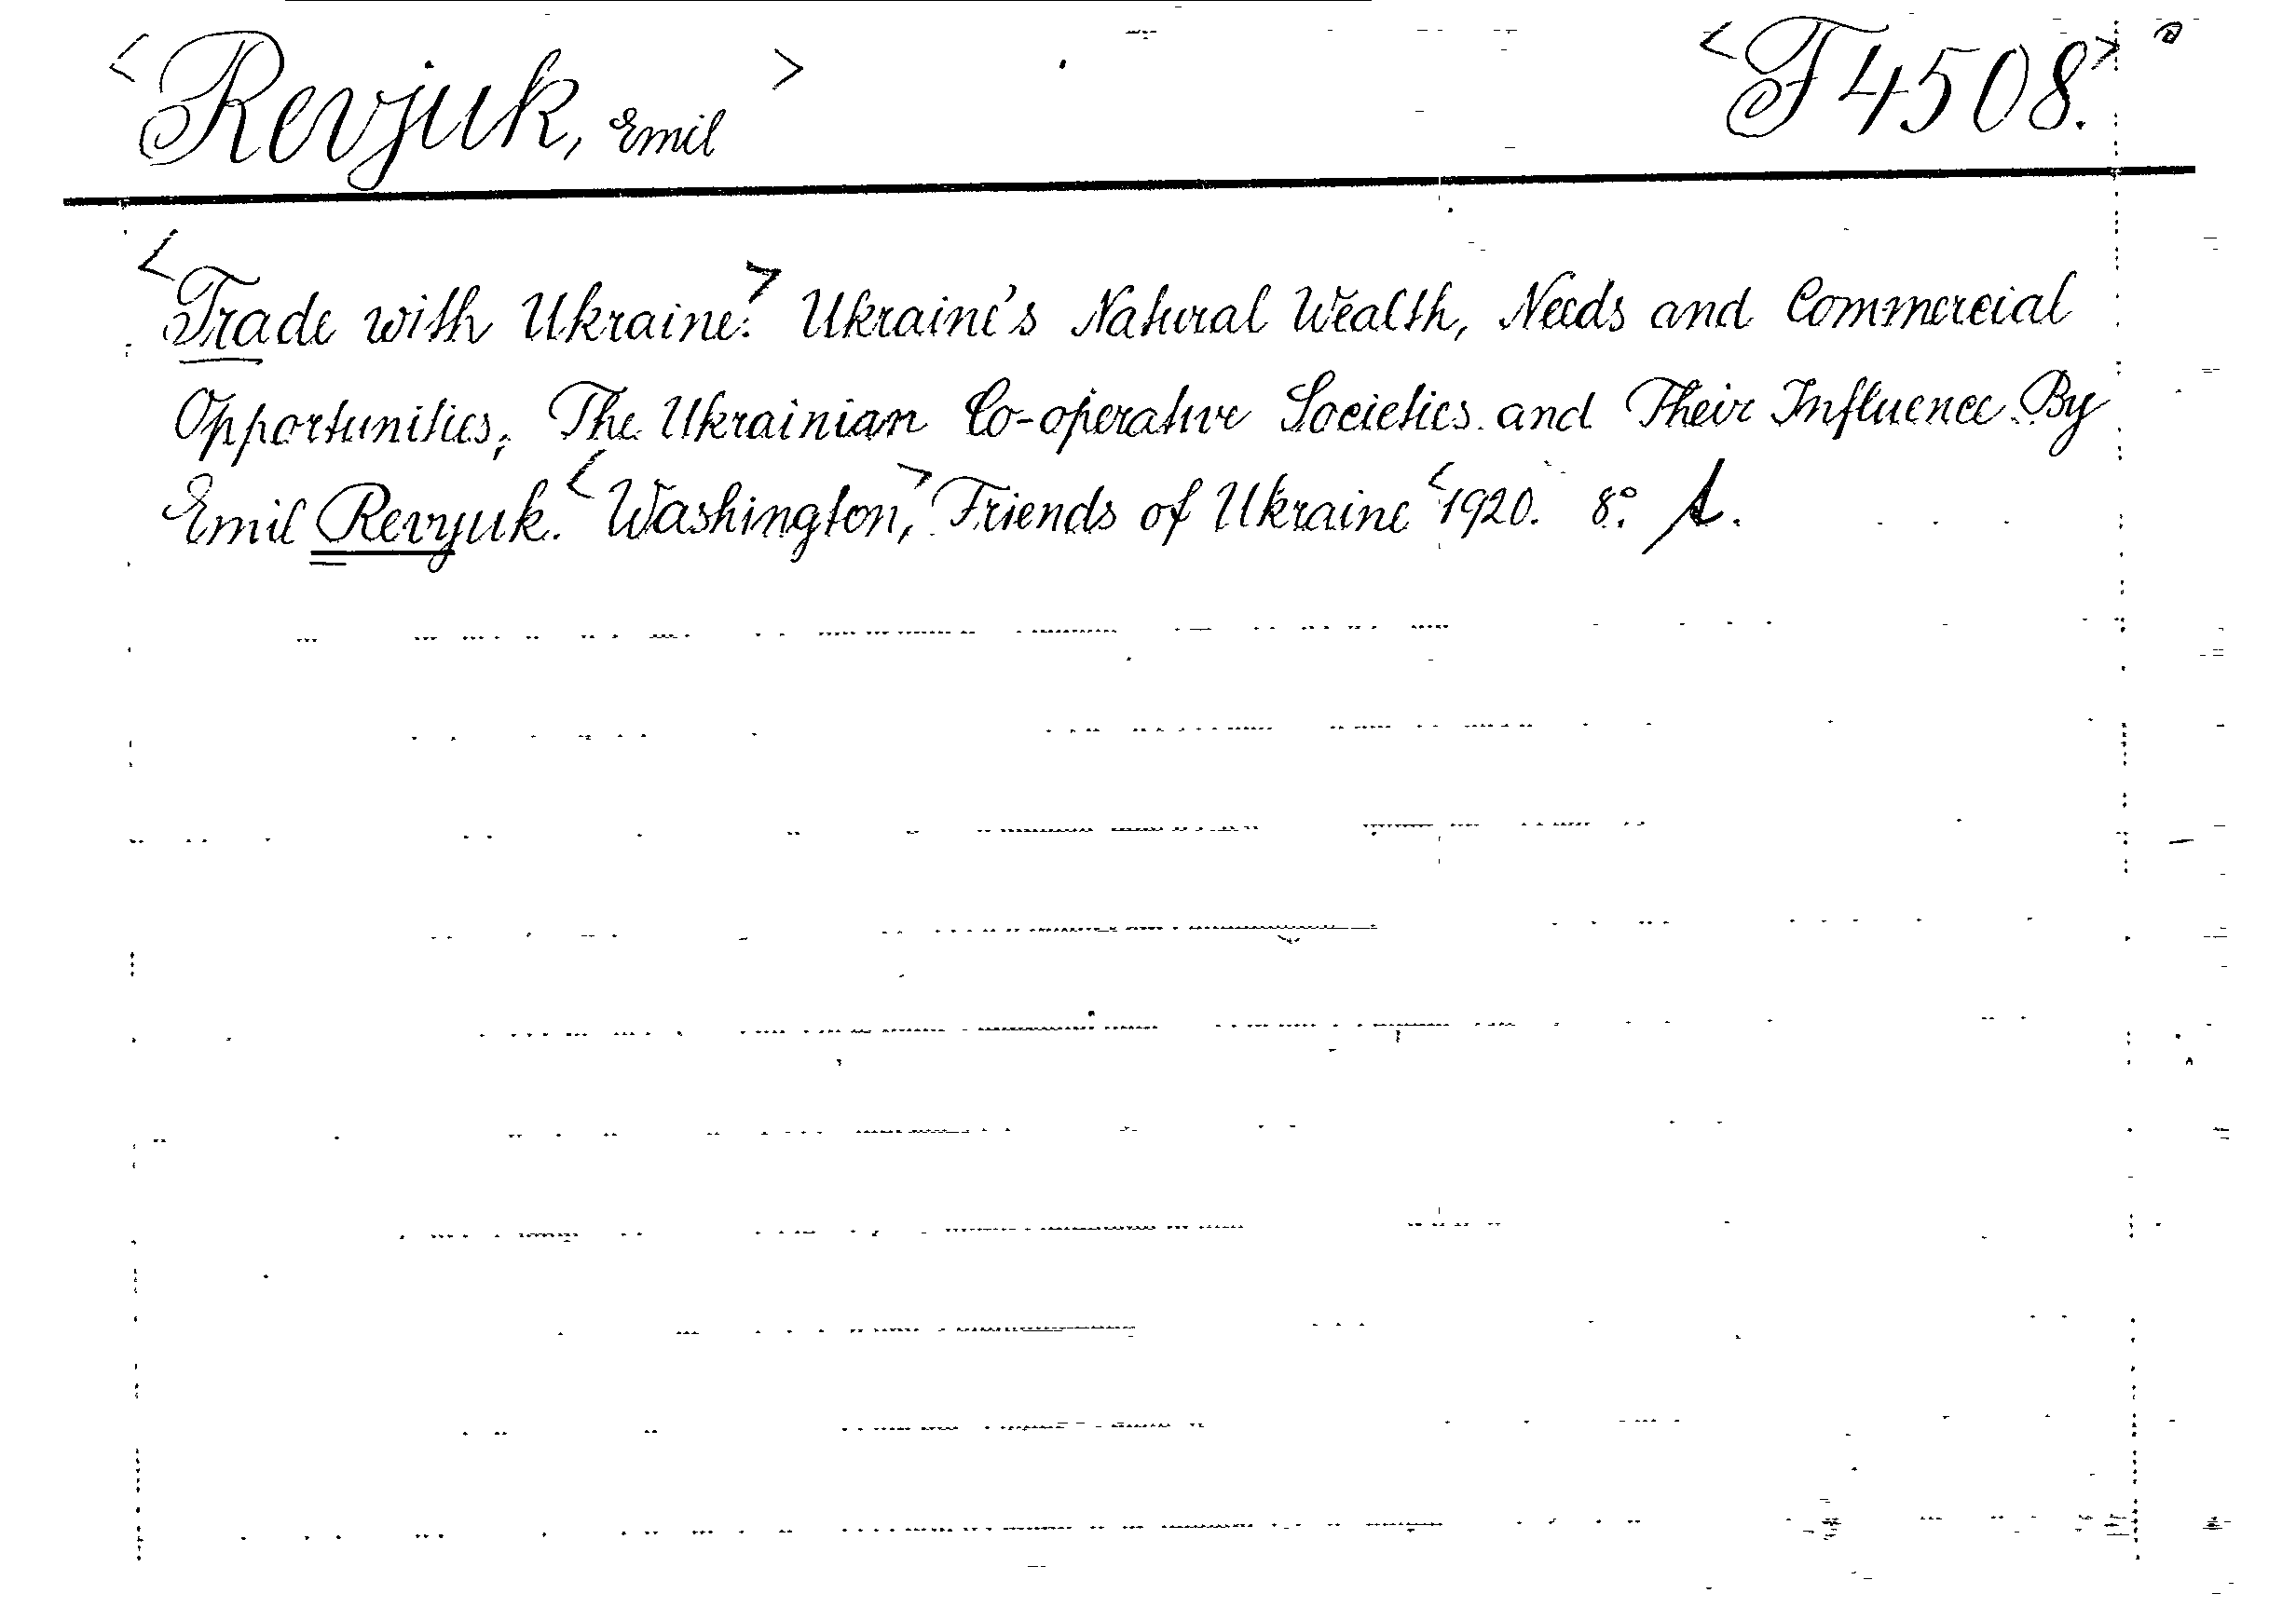 <Revjuk, Emil> <F 4508.>
<Trade with Ukraine.> Ukraine's Natural Wealth, Needs and Commercial
Opportunities; The Ukrainian Co-operative Societies and Their Influence. By
Emil Revyuk. <Washington,> Friends of Ukraine <1920. 8°.